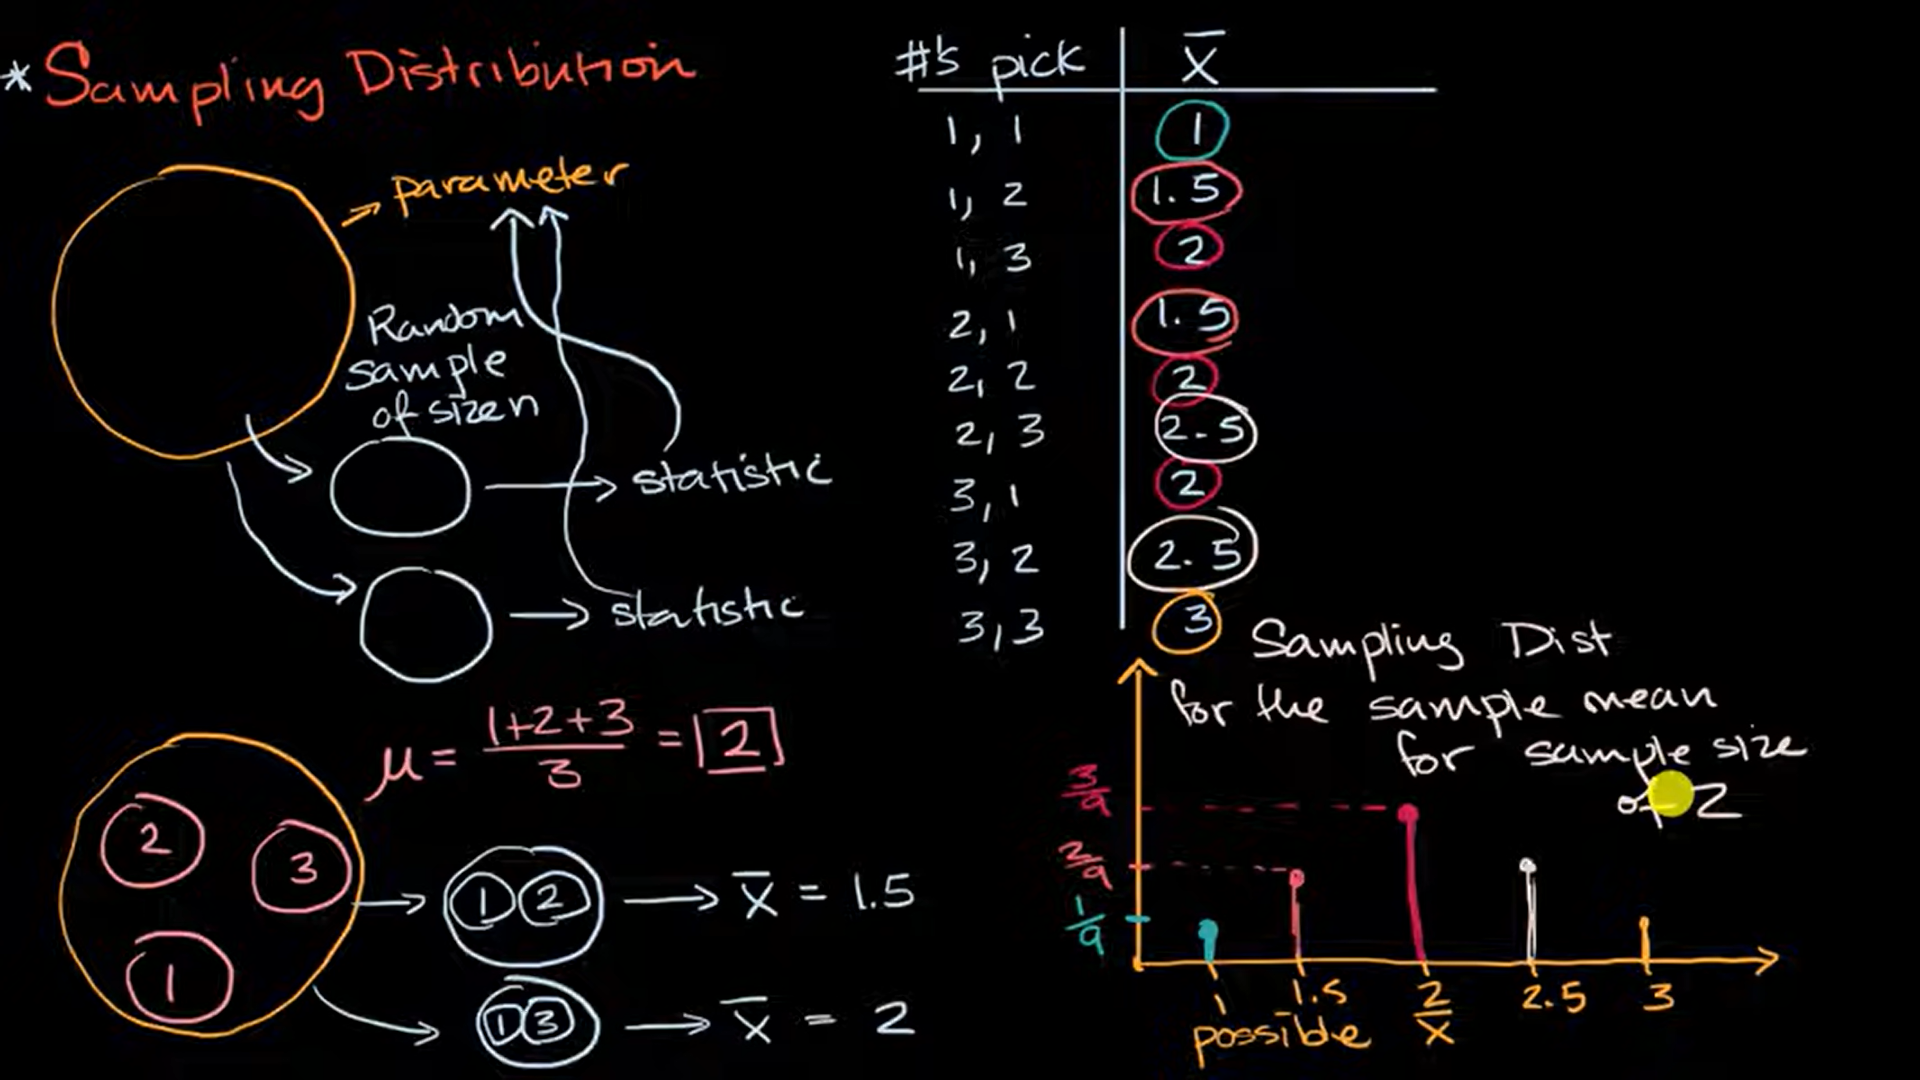 * Sampling Distribution
parameter
Random
sample
of size n
statistic
statistic
μ = (1+2+3)/3 = 2
2
3
1
1 2 → x̄ = 1.5
1 3 → x̄ = 2
#'s pick | x̄
1, 1 | 1
1, 2 | 1.5
1, 3 | 2
2, 1 | 1.5
2, 2 | 2
2, 3 | 2.5
3, 1 | 2
3, 2 | 2.5
3, 3 | 3
Sampling Dist
for the sample mean
for sample size
of 2
3/9
2/9
1/9
1 1.5 2 2.5 3
possible x̄